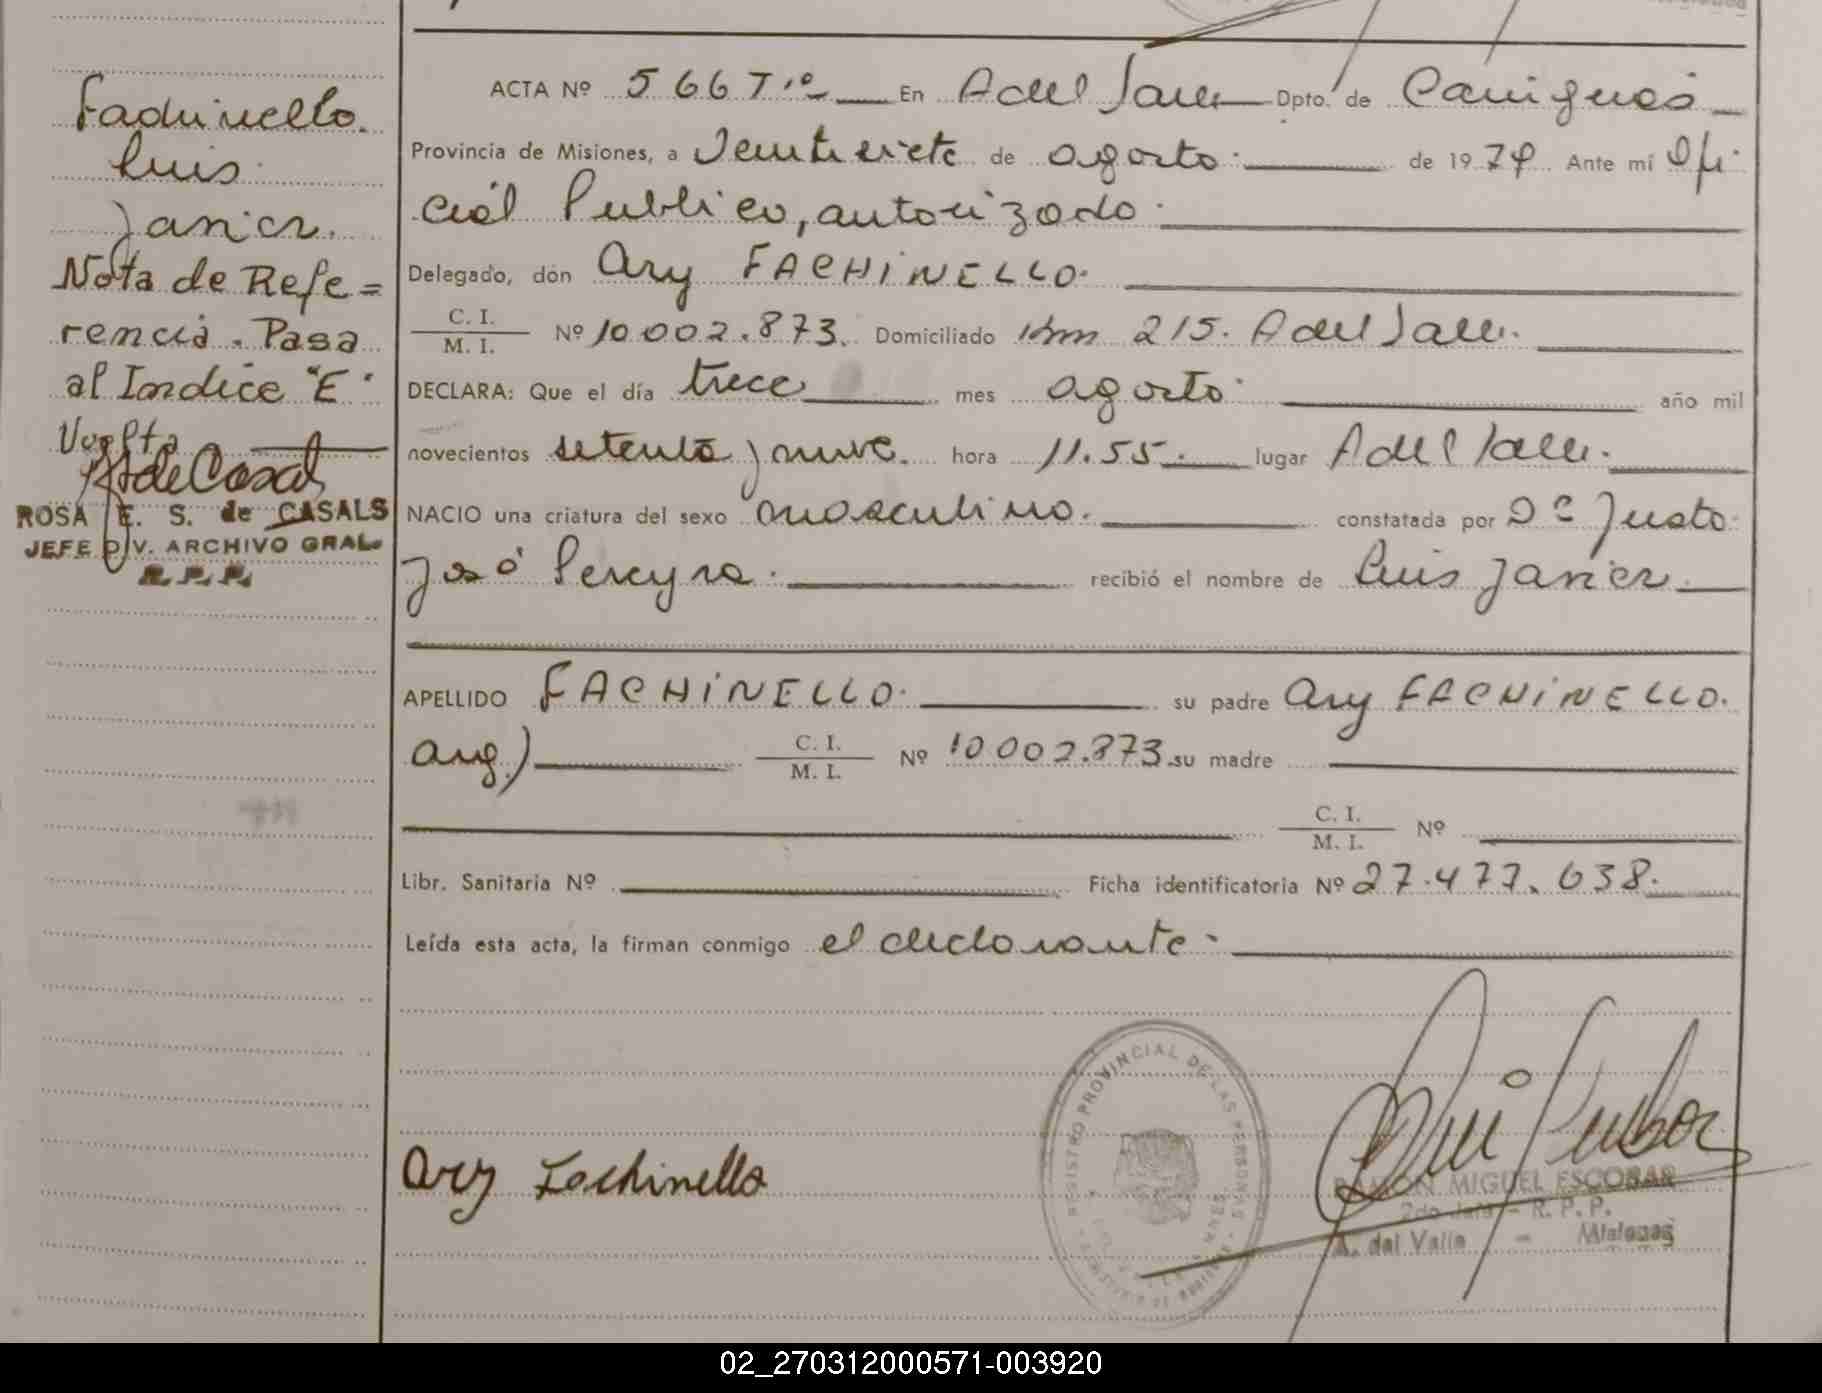 Fachinello.
Luis
Javier.
Nota de Refe=
rencia. Pasa
al Indice "E"
Vuelta
ROSA E. S. de CASALS
JEFE DIV. ARCHIVO GRAL.
R.P.P.
ACTA Nº 5667 En A del Valle Dpto. de Cainguás
Provincia de Misiones, a Veintisiete de agosto de 1979 Ante mí Ofi
cial Publico, autorizado
Delegado, dón Ary FACHINELLO.
C. I.
M. I. Nº 10.002.873. Domiciliado Km 215. A del Valle.
DECLARA: Que el día trece mes agosto año mil
novecientos setenta y nueve. hora 11.55 lugar A del Valle.
NACIO una criatura del sexo masculino. constatada por Justo
José Pereyra. recibió el nombre de Luis Javier.
APELLIDO FACHINELLO. su padre Ary FACHINELLO.
Arg.) C. I.
M. I. Nº 10.002.873 su madre
C. I.
M. I. Nº
Libr. Sanitaria Nº Ficha identificatoria Nº 27.477.638.
Leída esta acta, la firman conmigo el declarante.
REGISTRO PROVINCIAL DE LAS PERSONAS
Ary Fachinello
RAMON MIGUEL ESCOBAR
2do Jefe - R. P. P.
A. del Valle - Misiones
02_270312000571-003920